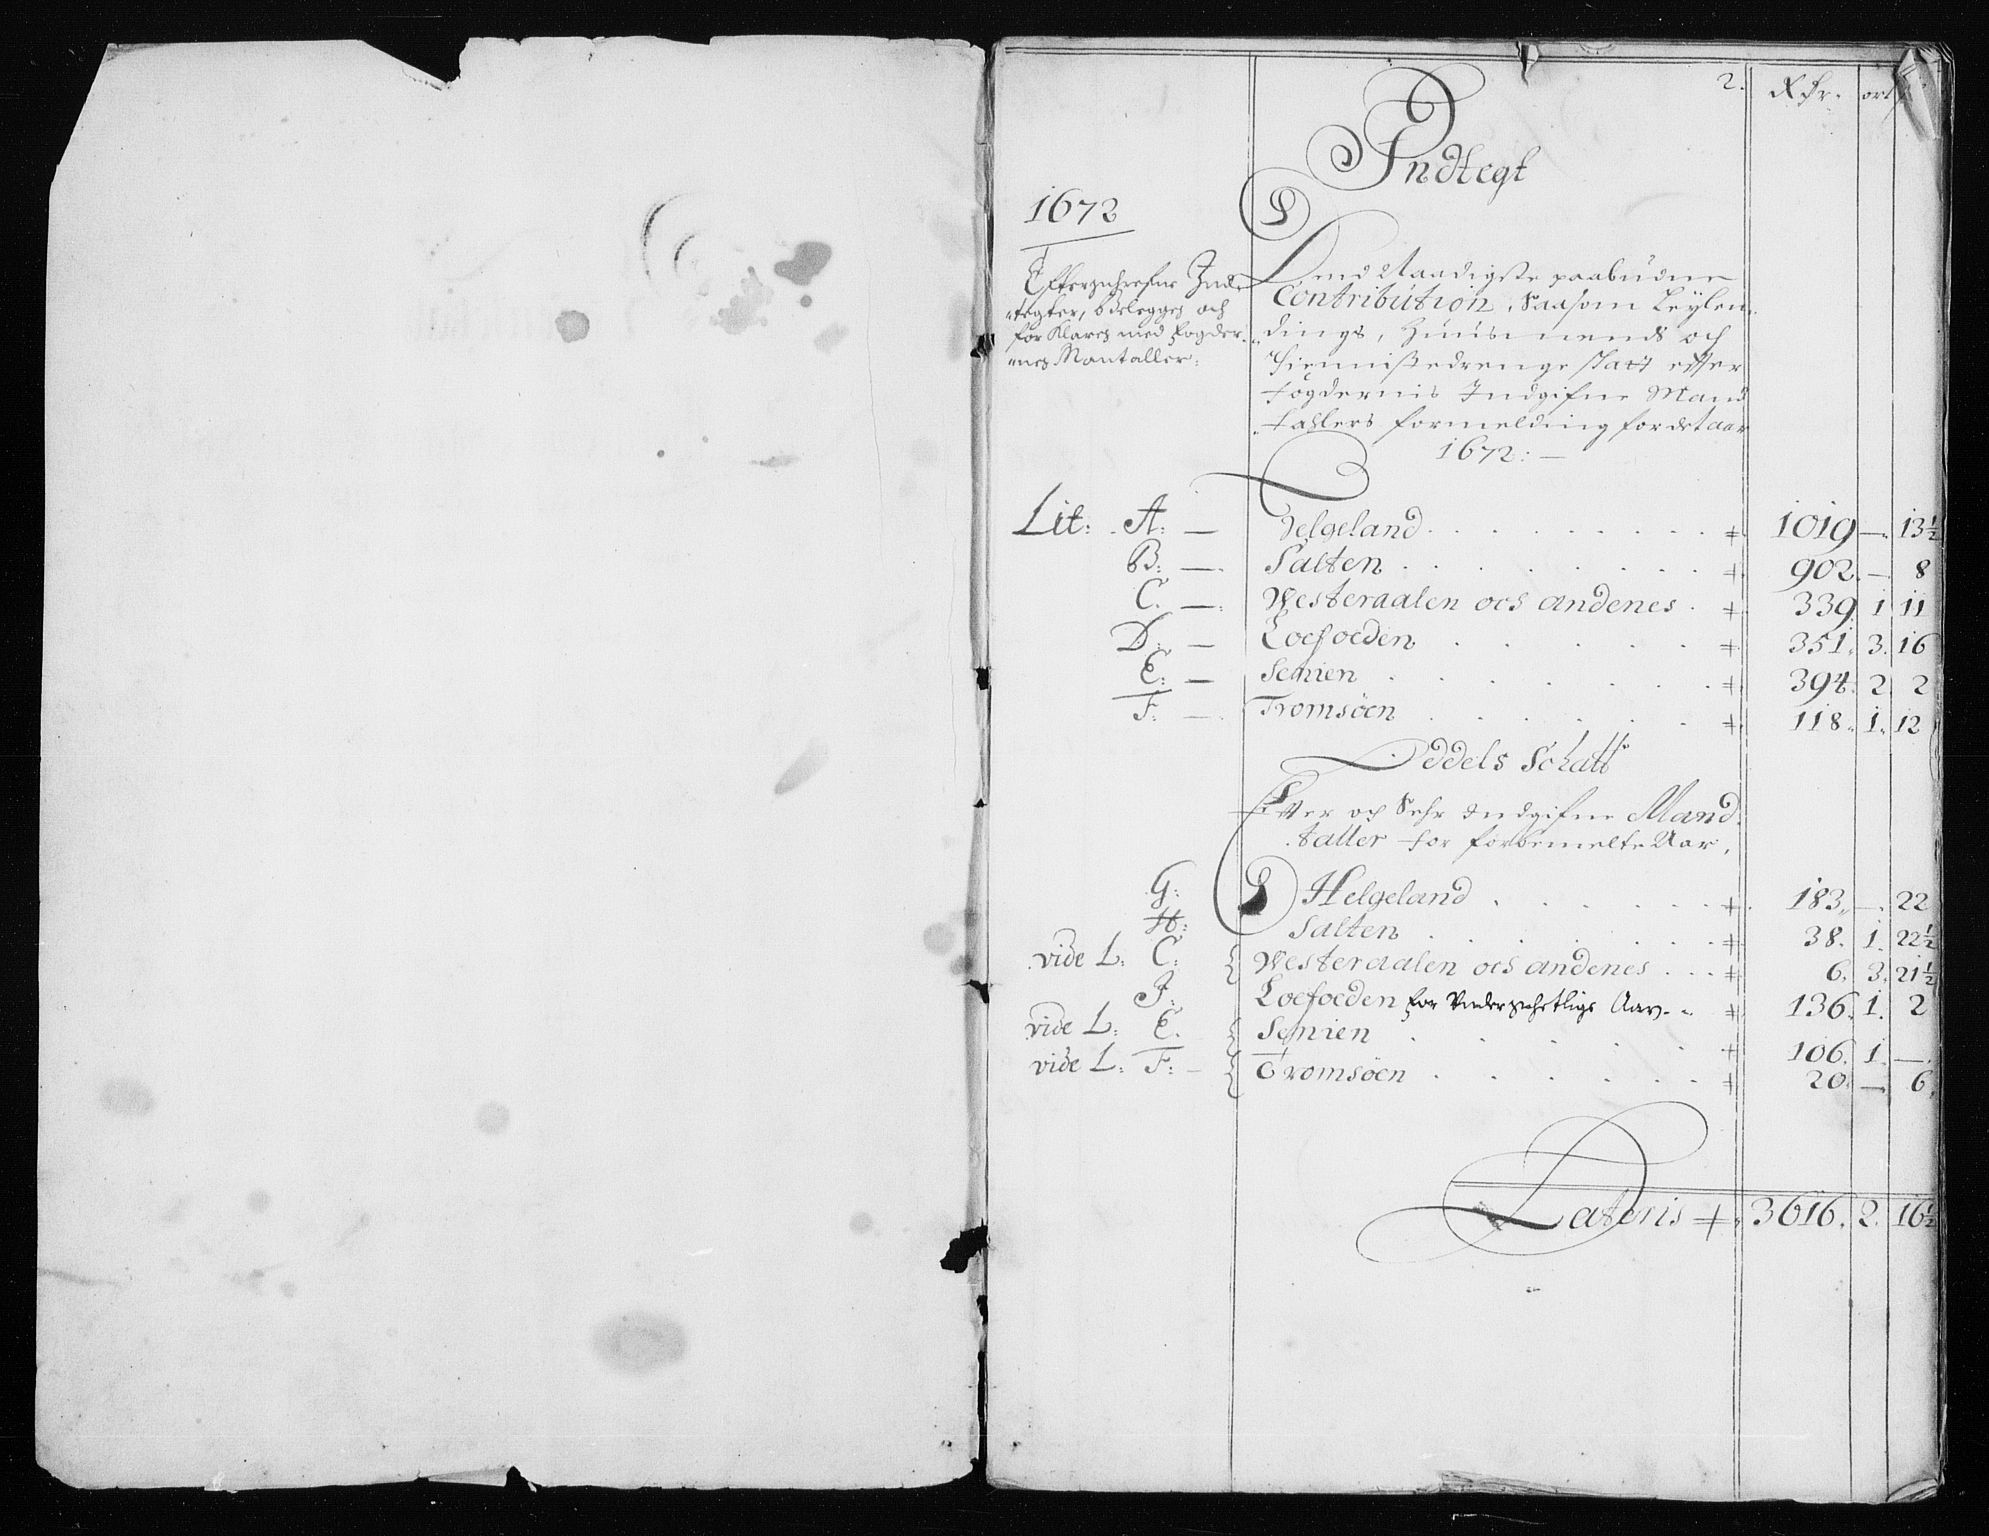 2. Rdr. ort ß
Indtegt
1672
Efterschrefne Ind-
tegter, bdelegges och
forKlares med fogder-
nes Mantaller:
Dend Naadigste paabudne
Contribution, Saasom Leylen-
dings, Huusmends och
Tienniste drenge skatt effter
fogdernis Indgifne Mand
tahlers formelding for det aar
1672: —
Lit: A: — Helgeland + 1019 — 13½
B: — Salten + 902 — 8
C. — Westeraalen och andenes + 339 1 11
D: — Loefoeden + 351. 3. 16
E: — Senien + 394. 2 2
F: — Tromsöen + 118. 1. 12
Oddels Schatt
Effter och Sehr Indgifne Mand
taller for forbemelte Aar,
G: Helgeland + 183. — 22
H: Salten + 38. 1. 22½
vide L: C: Westeraalen och andenes + 6. 3. 21½
J: Loefoeden for Aar + 136. 1. 2
vide L: E. Senien + 106. 1. —
vide L: F: — Tromsöen + 20. — 6
Lateris + 3616. 2. 16½